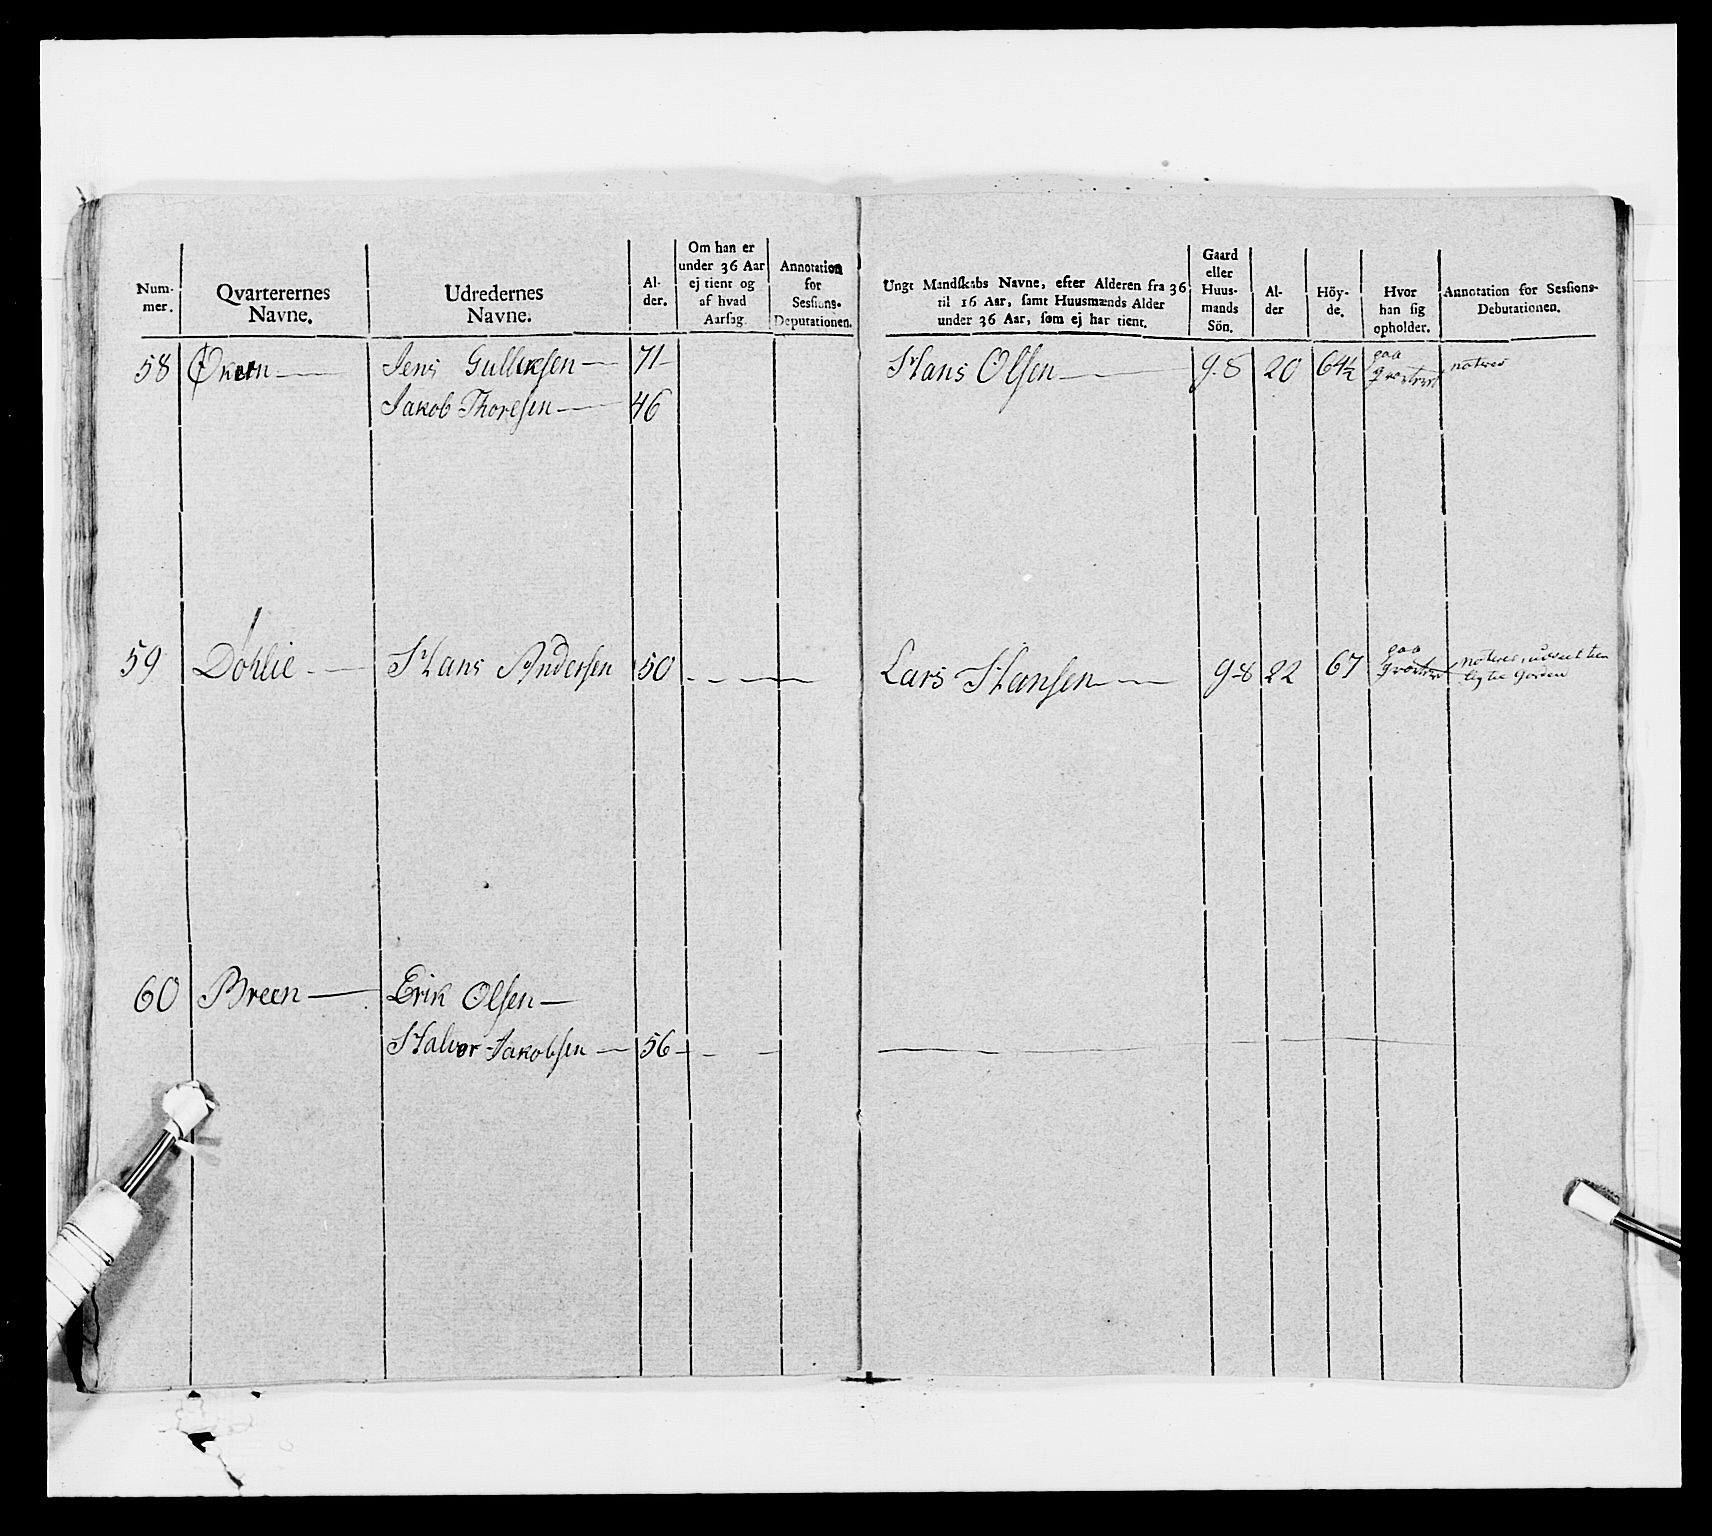 Num-
mer.
Qvarterernes
Navne.
Udredernes
Navne.
Al-
der.
Om han er
under 36 Aar
ej tient og
af hvad
Aarsag.
Annotation
for
Sessions-
Deputationen.
Ungt Mandskabs Navne, efter Alderen fra 36
til 16 Aar, samt Huusmænds Alder
under 36 Aar, som ej har tient.
Gaard
eller
Huus-
mands
Sön.
Al-
der
Höy-
de.
Hvor
han sig
opholder.
Annotation for Sessions-
Debutationen.
58 Økern Jens Gulliksen 71 Hans Olsen g. S 20 64½ paa noteres
Jakob Thoresen 46
59 Döhlie Hans Andersen 50 Lars Hansen g-S 22 67 paa noteres,
60 Breen Erik Olsen
Halvor Jakobsen 56